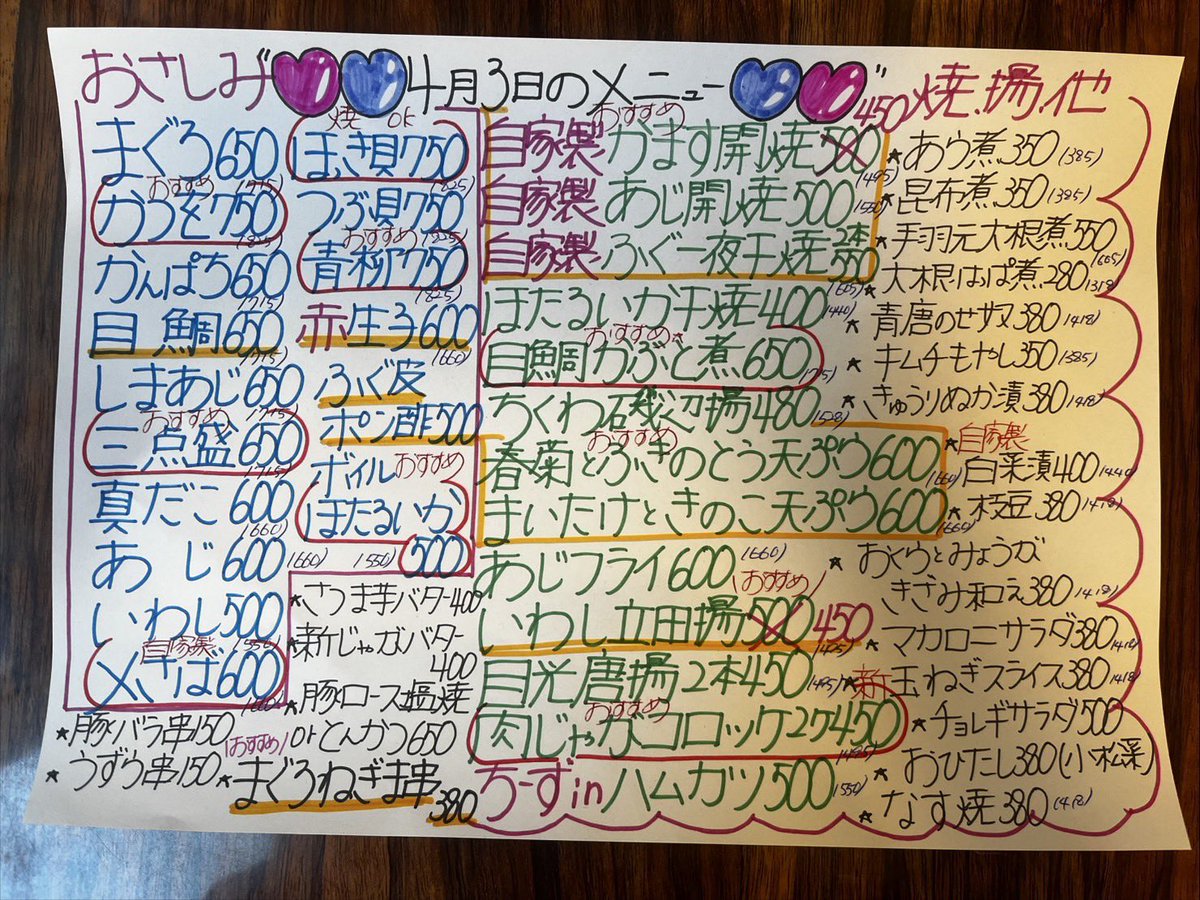 おさしみ
4月3日のメニュー
焼.揚.他
まぐろ650
(715)
おすすめ
かつを750
(825)
かんぱち650
(715)
目鯛650
(715)
しまあじ650
(715)
おすすめ
三点盛650
(715)
真だこ600
(660)
あじ600
(660)
いわし500
(550)
自家製
〆さば600
(660)
焼 or
ほっき貝750
(825)
つぶ貝750
(825)
おすすめ
青柳750
(825)
赤生子600
(660)
ふぐ皮
ポン酢500
(550)
ボイル おすすめ
ほたるいか
500
★さつま芋バター400
★新じゃがバター
400
★豚ロース塩焼
orとんかつ650
★豚バラ串150
★うずら串150
おすすめ
★まぐろねぎま串
380
おすすめ
自家製かます開焼500 450
(495)
自家製あじ開焼500
(550)
自家製ふぐ一夜干焼2本
550
(605)
ほたるいか干焼400
(440)
おすすめ★
目鯛かぶと煮650
(715)
ちくわ磯辺揚480
(528)
おすすめ
春菊とふきのとう天ぷら600
(660)
まいたけときのこ天ぷら600
(660)
あじフライ600
(660)
おすすめ
いわし立田揚500 450
(495)
目光唐揚2本450
(495)
おすすめ
肉じゃがコロッケ2ケ450
(495)
ちーずinハムカツ500
(550)
★あら煮350(385)
★昆布煮350(385)
★手羽元大根煮550
(605)
★大根はっぱ煮280
★青唐のせ冷奴380(418)
★キムチもやし350(385)
★きゅうりぬか漬380(418)
★自家製
白菜漬400(440)
★枝豆380(418)
★おくらとみょうが
きざみ和え380(418)
★マカロニサラダ380(418)
★新玉ねぎスライス380(418)
★チョレギサラダ500
★おひたし380(小松菜)
★なす焼380(418)